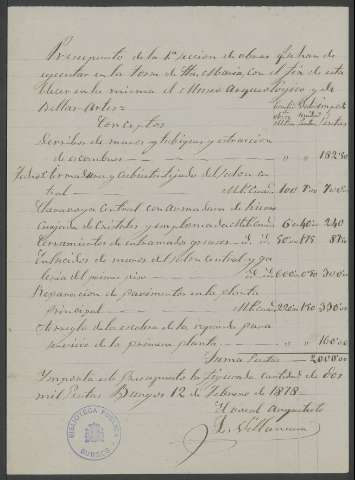 Presupuesto de la 1ª seccion de obras q.e han de
ejecutar en la torre de Sta. Maria, con el fin de esta
blecer en la misma el Museo Arqueológico y de
Bellas Artes
Conceptos
Derribos de muros y tabiques y extraccion
de escombros " " 182'50
armadura y cubierta tejado del salon cen
tral Mts. Cuads. 100 7'00 700'00
Claraboya central con armadura de hierro
de cristales y emplomado 6 40 240
Cerramientos de entramados gruesos 50 1'75 87'50
Enlucidos de muros del salon central y ga
leria del mismo piso 600 0'50 300'00
Reparacion de pavimentos en la planta
principal 220 1'50 330'00
Arreglo de la escalera de la segunda para
servicio de la primera planta " 160'00
Suma Pesetas 2000'00
Importa este presupuesto la figurada cantidad de dos
mil Pesetas Burgos 12 de Febrero de 1878
El vocal Arquitecto
L. Villanueva
BIBLIOTECA PUBLICA
BURGOS